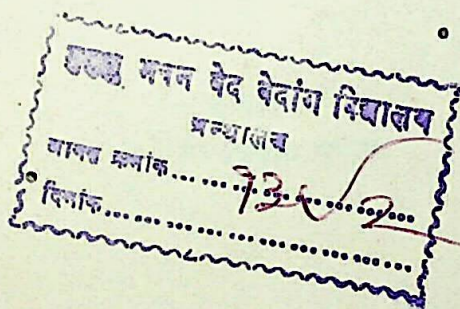 मुमुक्षु भवन वेद वेदांग विद्यालय
ग्रन्थालय
आगत क्रमांक......73......2......
दिनांक..........................